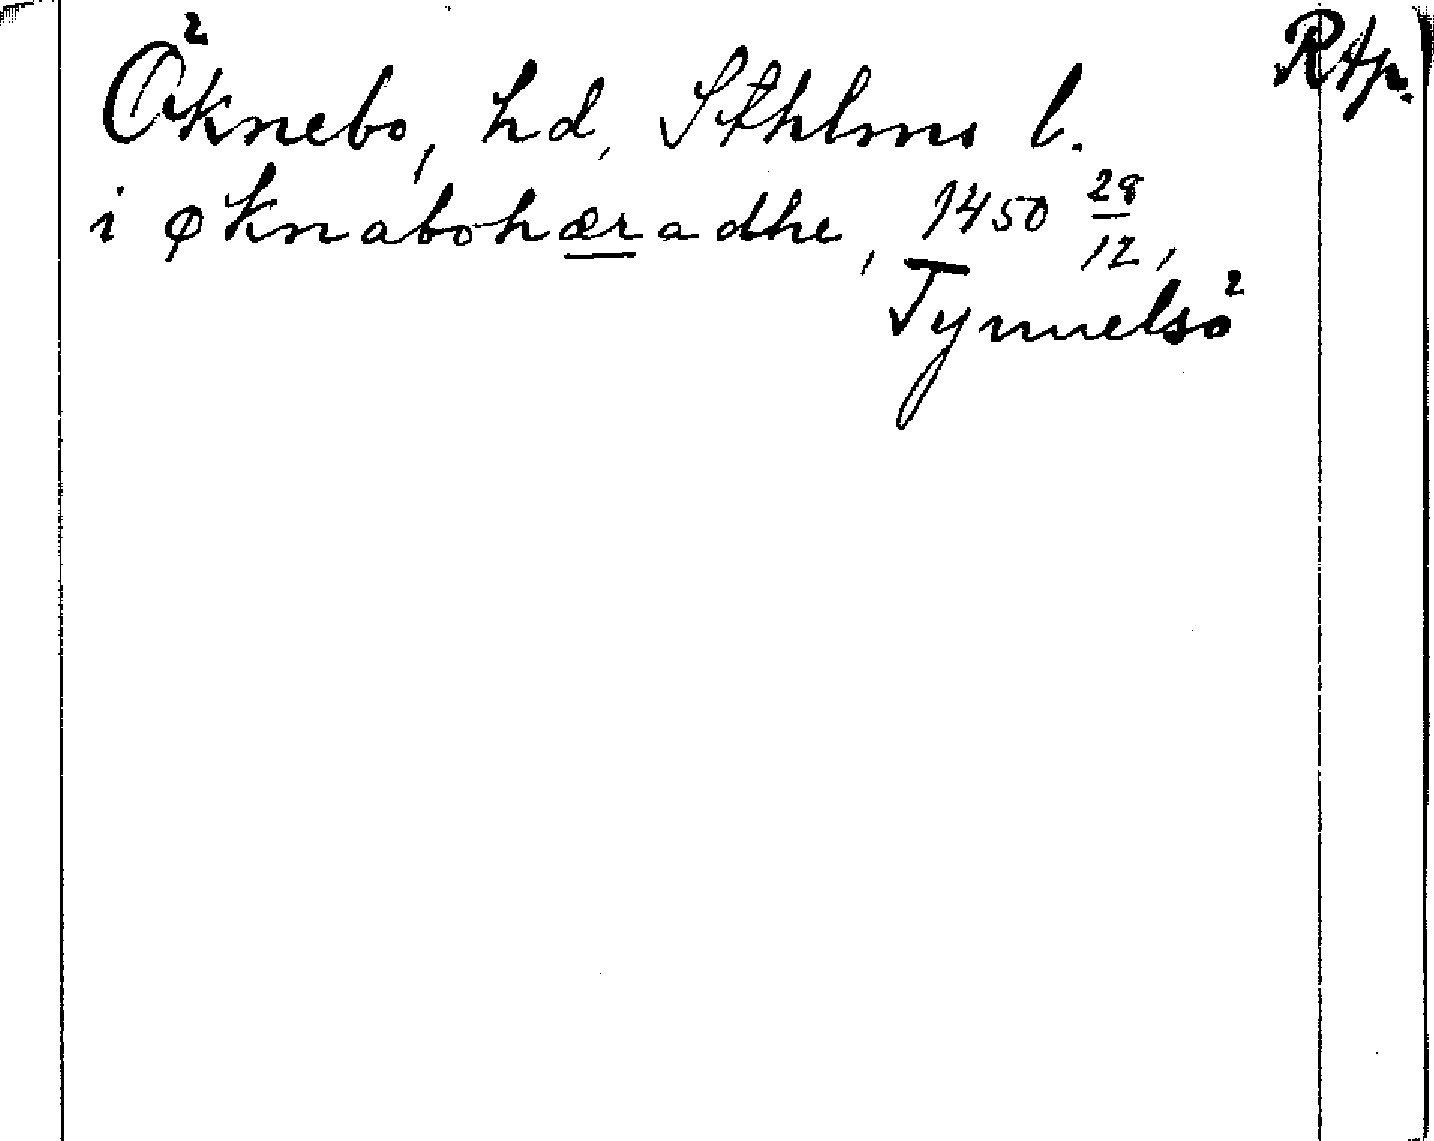 Rtp.
Öknebo, hd, Sthlms l.
i øknabohæradhe, 1450 28/12,
Tynnelsö